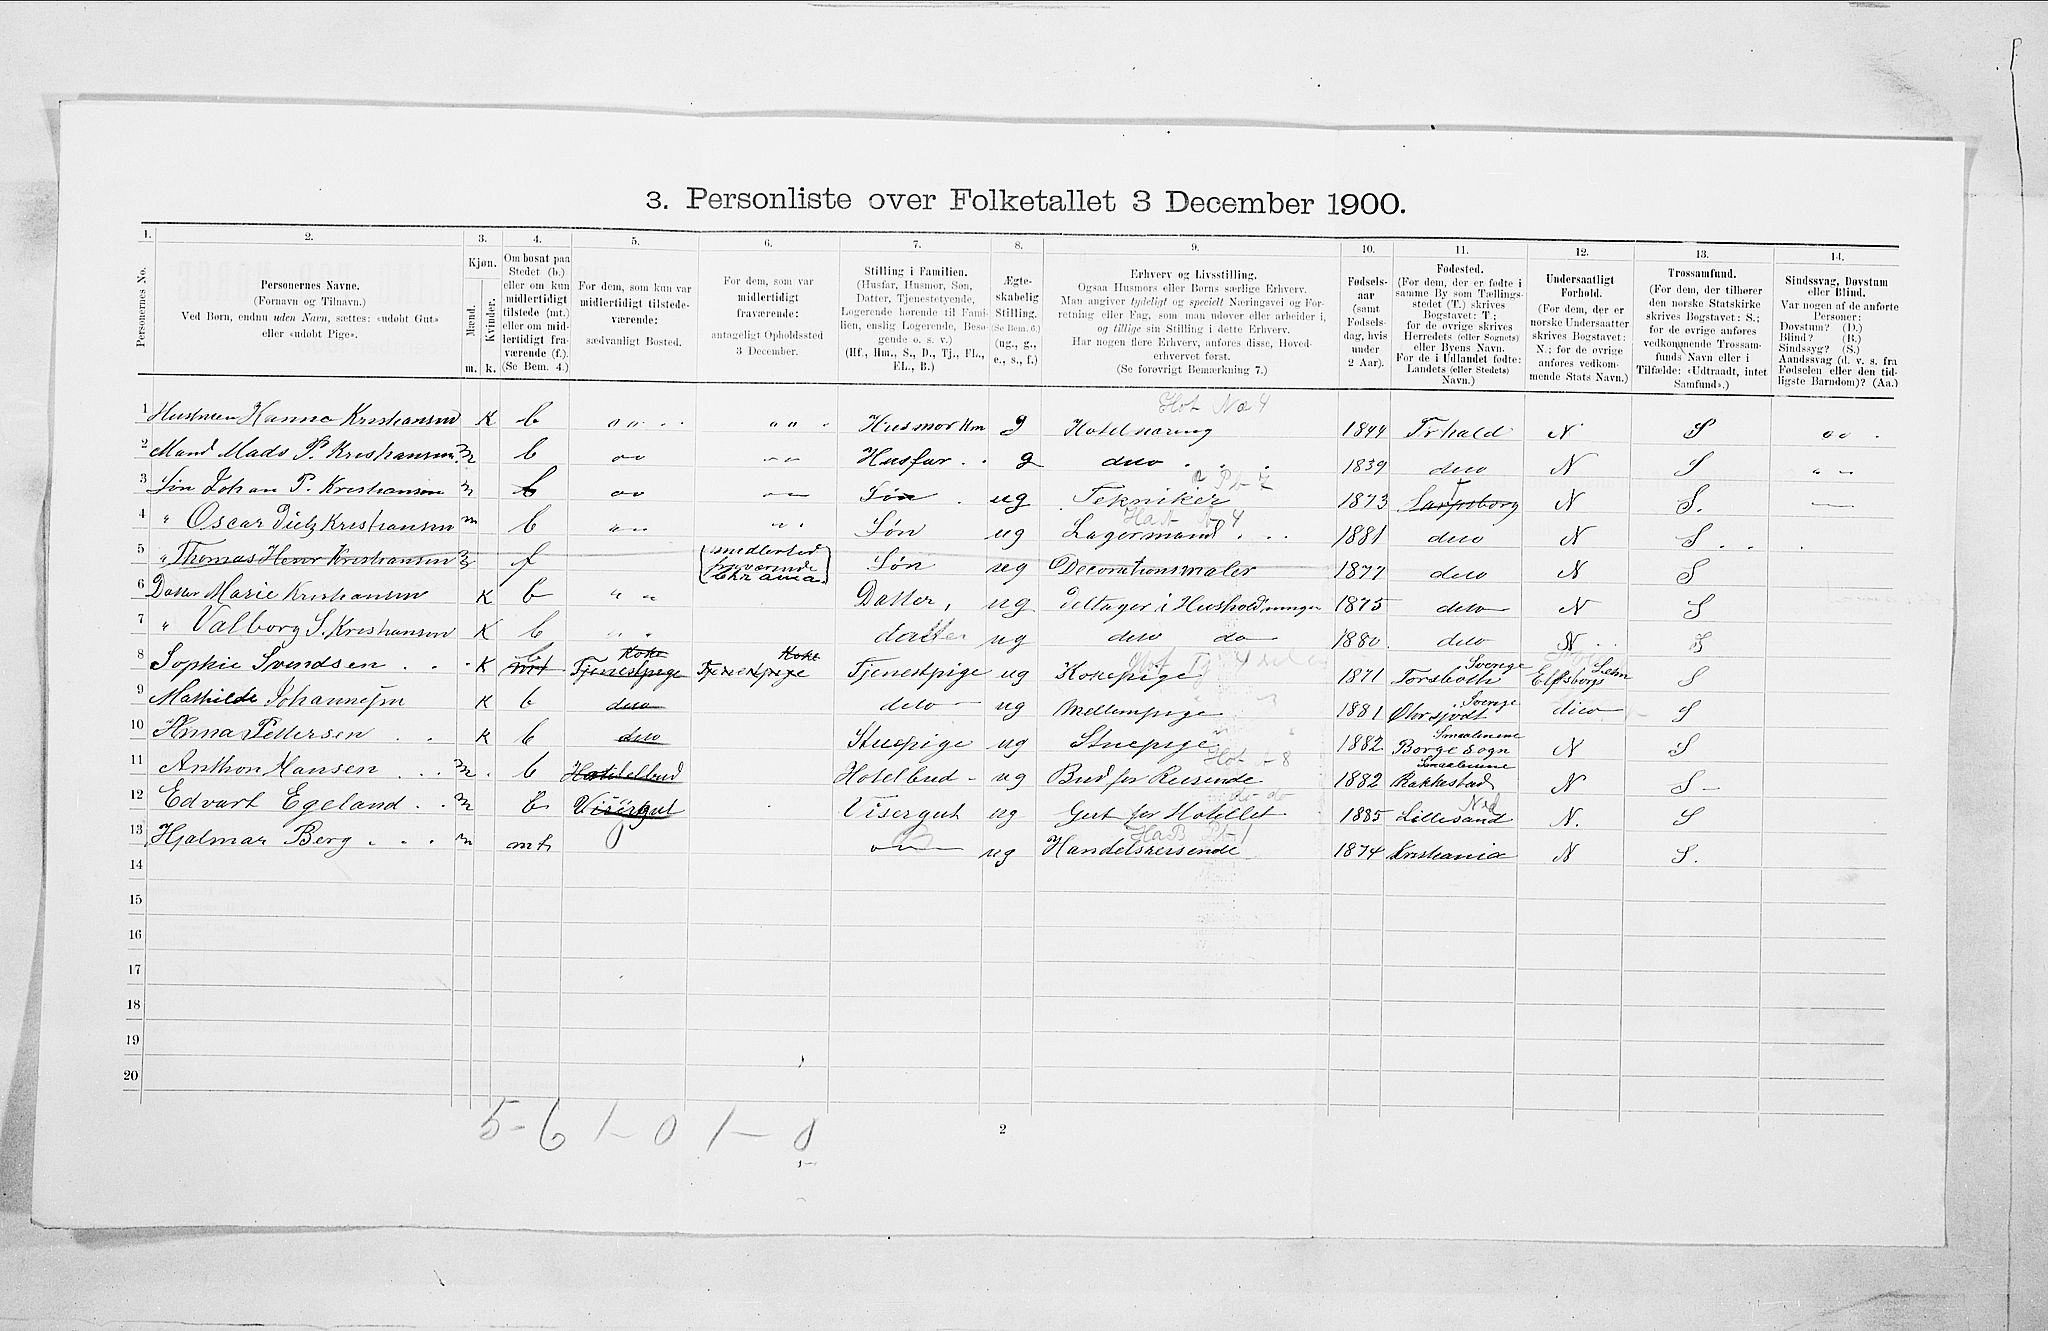 3. Personliste over Folketallet 3 December 1900.
1. 2. 3. 4. 5. 6. 7. 8. 9. 10. 11. 12. 13. 14.
Personernes No.
Personernes Navne.
(Fornavn og Tilnavn.)
Ved Børn, endnu uden Navn, sættes: «udøbt Gut»
eller «udøbt Pige».
Kjøn.
Mænd. Kvinder.
m. k.
Om bosat paa
Stedet (b.)
eller om kun
midlertidigt
tilstede (mt.)
eller om mid-
lertidigt fra-
værende (f.).
(Se Bem. 4.)
For dem, som kun var
midlertidigt tilstede-
værende:
sædvanligt Bosted.
For dem, som var
midlertidigt
fraværende:
antageligt Opholdssted
3 December.
Stilling i Familien.
(Husfar, Husmor, Søn,
Datter, Tjenestetyende,
Logerende hørende til Fami-
lien, enslig Logerende, Besø-
gende o. s. v.)
(Hf., Hm., S., D., Tj., FL.,
EL., B.)
Ægte-
skabelig
Stilling.
(Se Bem. 6.)
(ug., g.,
e., s., f.)
Erhverv og Livsstilling.
Ogsaa Husmors eller Børns særlige Erhverv.
Man angiver tydeligt og specielt Næringsvei og For-
retning eller Fag, som man udøver eller arbeider i,
og tillige sin Stilling i dette Erhverv.
Har nogen flere Erhverv, anføres disse, Hoved-
erhvervet først.
(Se forøvrigt Bemærkning 7.)
Fødsels-
aar
(samt
Fødsels-
dag, hvis
under
2 Aar).
Fødested.
(For dem, der er fødte i
samme By som Tællings-
stedet (T.) skrives
Bogstavet: T;
for de øvrige skrives
Herredets (eller Sognets)
eller Byens Navn.
For de i Udlandet fødte:
Landets (eller Stedets)
Navn.)
Undersaatligt
Forhold.
(For dem, der er
norske Undersaatter
skrives Bogstavet:
N.; for de øvrige
anføres vedkom-
mende Stats Navn.)
Trossamfund.
(For dem, der tilhører
den norske Statskirke
skrives Bogstavet: S.;
for de øvrige anføres
vedkommende Trossam-
funds Navn eller i
Tilfælde: «Udtraadt, intet
Samfund».)
Sindssvag, Døvstum
eller Blind.
Var nogen af de anførte
Personer:
Døvstum? (D.)
Blind? (B.)
Sindssyg? (S.)
Aandssvag (d. v. s. fra
Fødselen eller den tid-
ligste Barndom)? (Aa.)
Hot No 4
1 Husmoer Hanna Kristiansen K b " " " " Husmor Hm g Hotelnæring 1844 Frhald N S " "
2 Mand Mads P. Kristiansen m b " " " " Husfar g dito 1839 dito N S " "
3 Søn Johan P. Kristiansen m b " " " " Søn ug Tekniker 1873 Sarpsborg T N S.
4 " Oscar Dietz Kristiansen m b " " " " Søn ug Lagermand 1881 dito N S
5 " Thomas Kristiansen m f midlertid fraværende Chrania Søn ug Decorationsmaler 1877 dito N S
6 Datter Marie Kristiansen K b " " Datter, ug Deltager i Husholdningen 1875 dito N S
7 " Valborg S. Kristiansen K b " " datter ug dito do 1880 dito N S
8 Sophie Svendsen K mt b Tjenestpige Koke Tjenestpige Koke Tjenestpige ug Kokepige 1871 Sverige Elfsborgs Lehn S
9 Mathilde Johannesen K b dito dito ug Mellempige 1881 Sverige dito S
10 Anna Pettersen K b dito Stuepige ug Stuepige 1882 Smaalenene Borge Sogn N S
11 Anthon Hansen m b Hotelbud Hotelbud ug Bud for Reisende 1882 Smaalenene Rakkestad N S
12 Edvart Egeland m b Visergut Visergut ug Gut for Hotellet 1885 Lillesand N. S
13 Hjalmar Berg m mt ug Handelsreisende 1874 Kristiania N S.
14
15
16
17
18
19
20
5-6 1-0 1-0
2